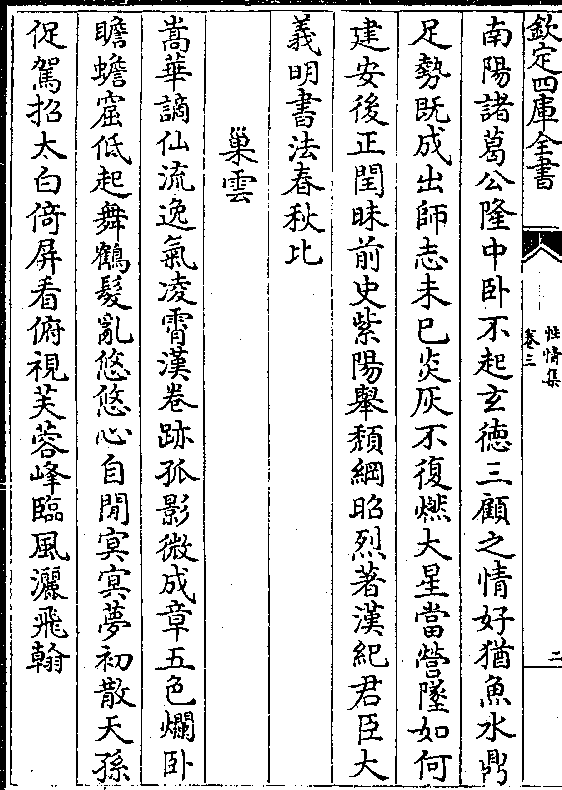 欽定四庫全書
性情集
卷三
二
南陽諸葛公隆中卧不起玄徳三顧之情好猶魚水鼎
足勢既成出師志未已炎灰不復燃大星當營墜如何
建安後正閏昧前史紫陽舉頽綱昭烈著漢紀君臣大
義明書法春秋比
巢雲
嵩華謫仙流逸氣凌霄漢卷跡孤影微成章五色爛卧
瞻蟾窟低起舞鶴髮亂悠悠心自閒冥冥夢初散天孫
促駕招太白倚屏看俯視芙蓉峰臨風灑飛翰